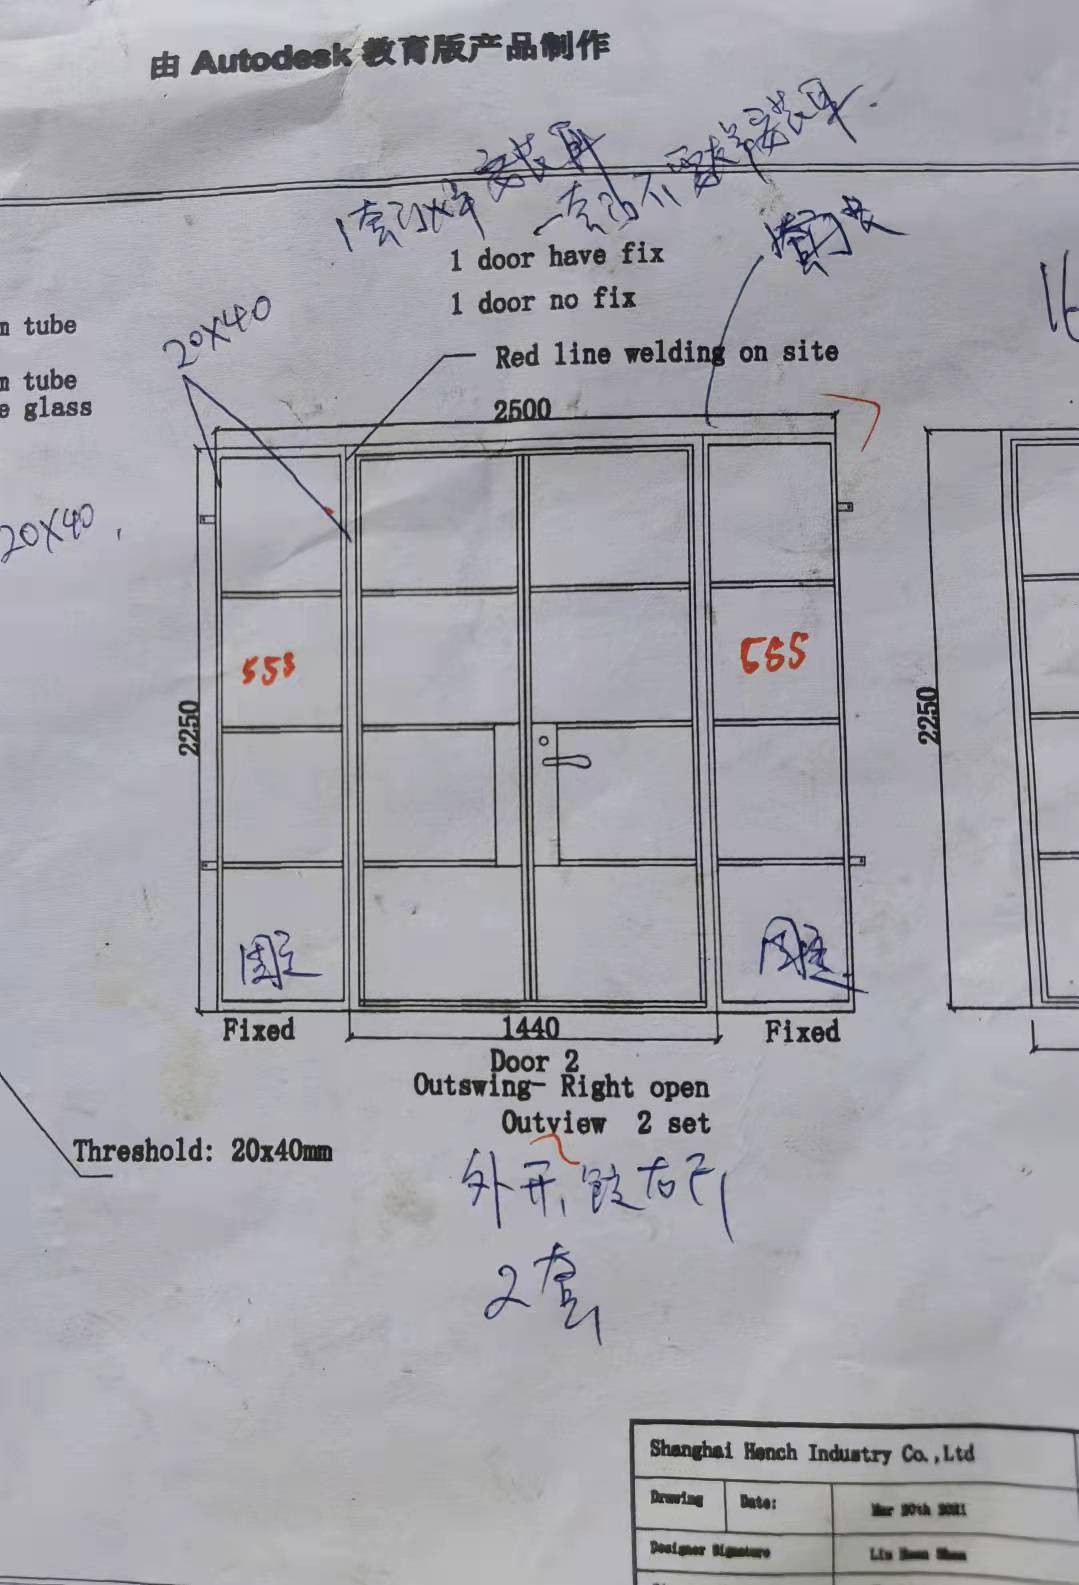 由 Autodesk 教育版产品制作
1套 焊安装耳
一套 不要焊安装耳
1 door have fix
1 door no fix
n tube
20X40
n tube
Red line welding on site
e glass
2500
20X40
555
555
2250
2250
固定
固定
Fixed
1440
Fixed
Door 2
Outswing- Right open
Outview 2 set
Threshold: 20x40mm
外开,铰右开
2套
Shanghai Hench Industry Co.,Ltd
Drawing
Date:
Mar 20th 2021
Designer Signature